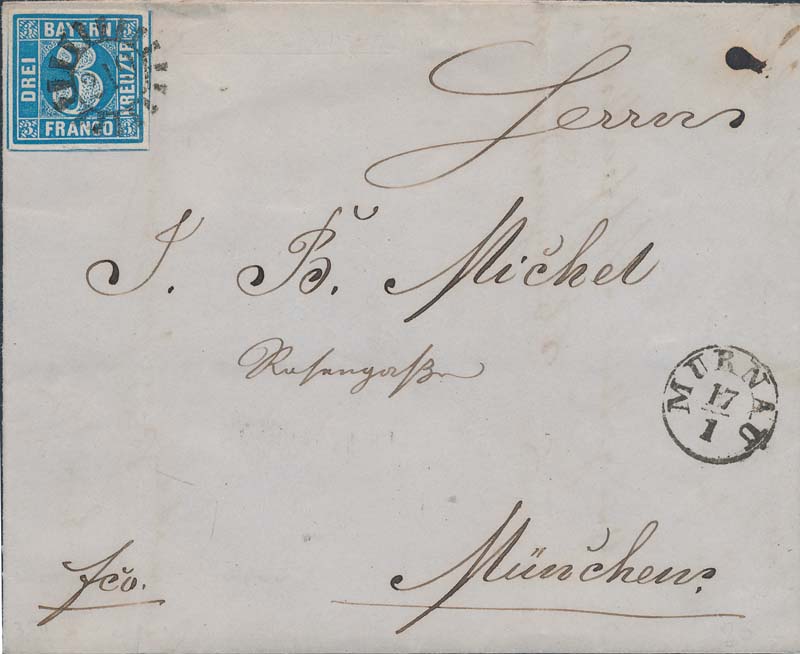 BAYERN
DREI
KREUZER
3
FRANCO
Herrn
J. B. Michel
Rosengaße
MURNAU
17
1
fco.
München.